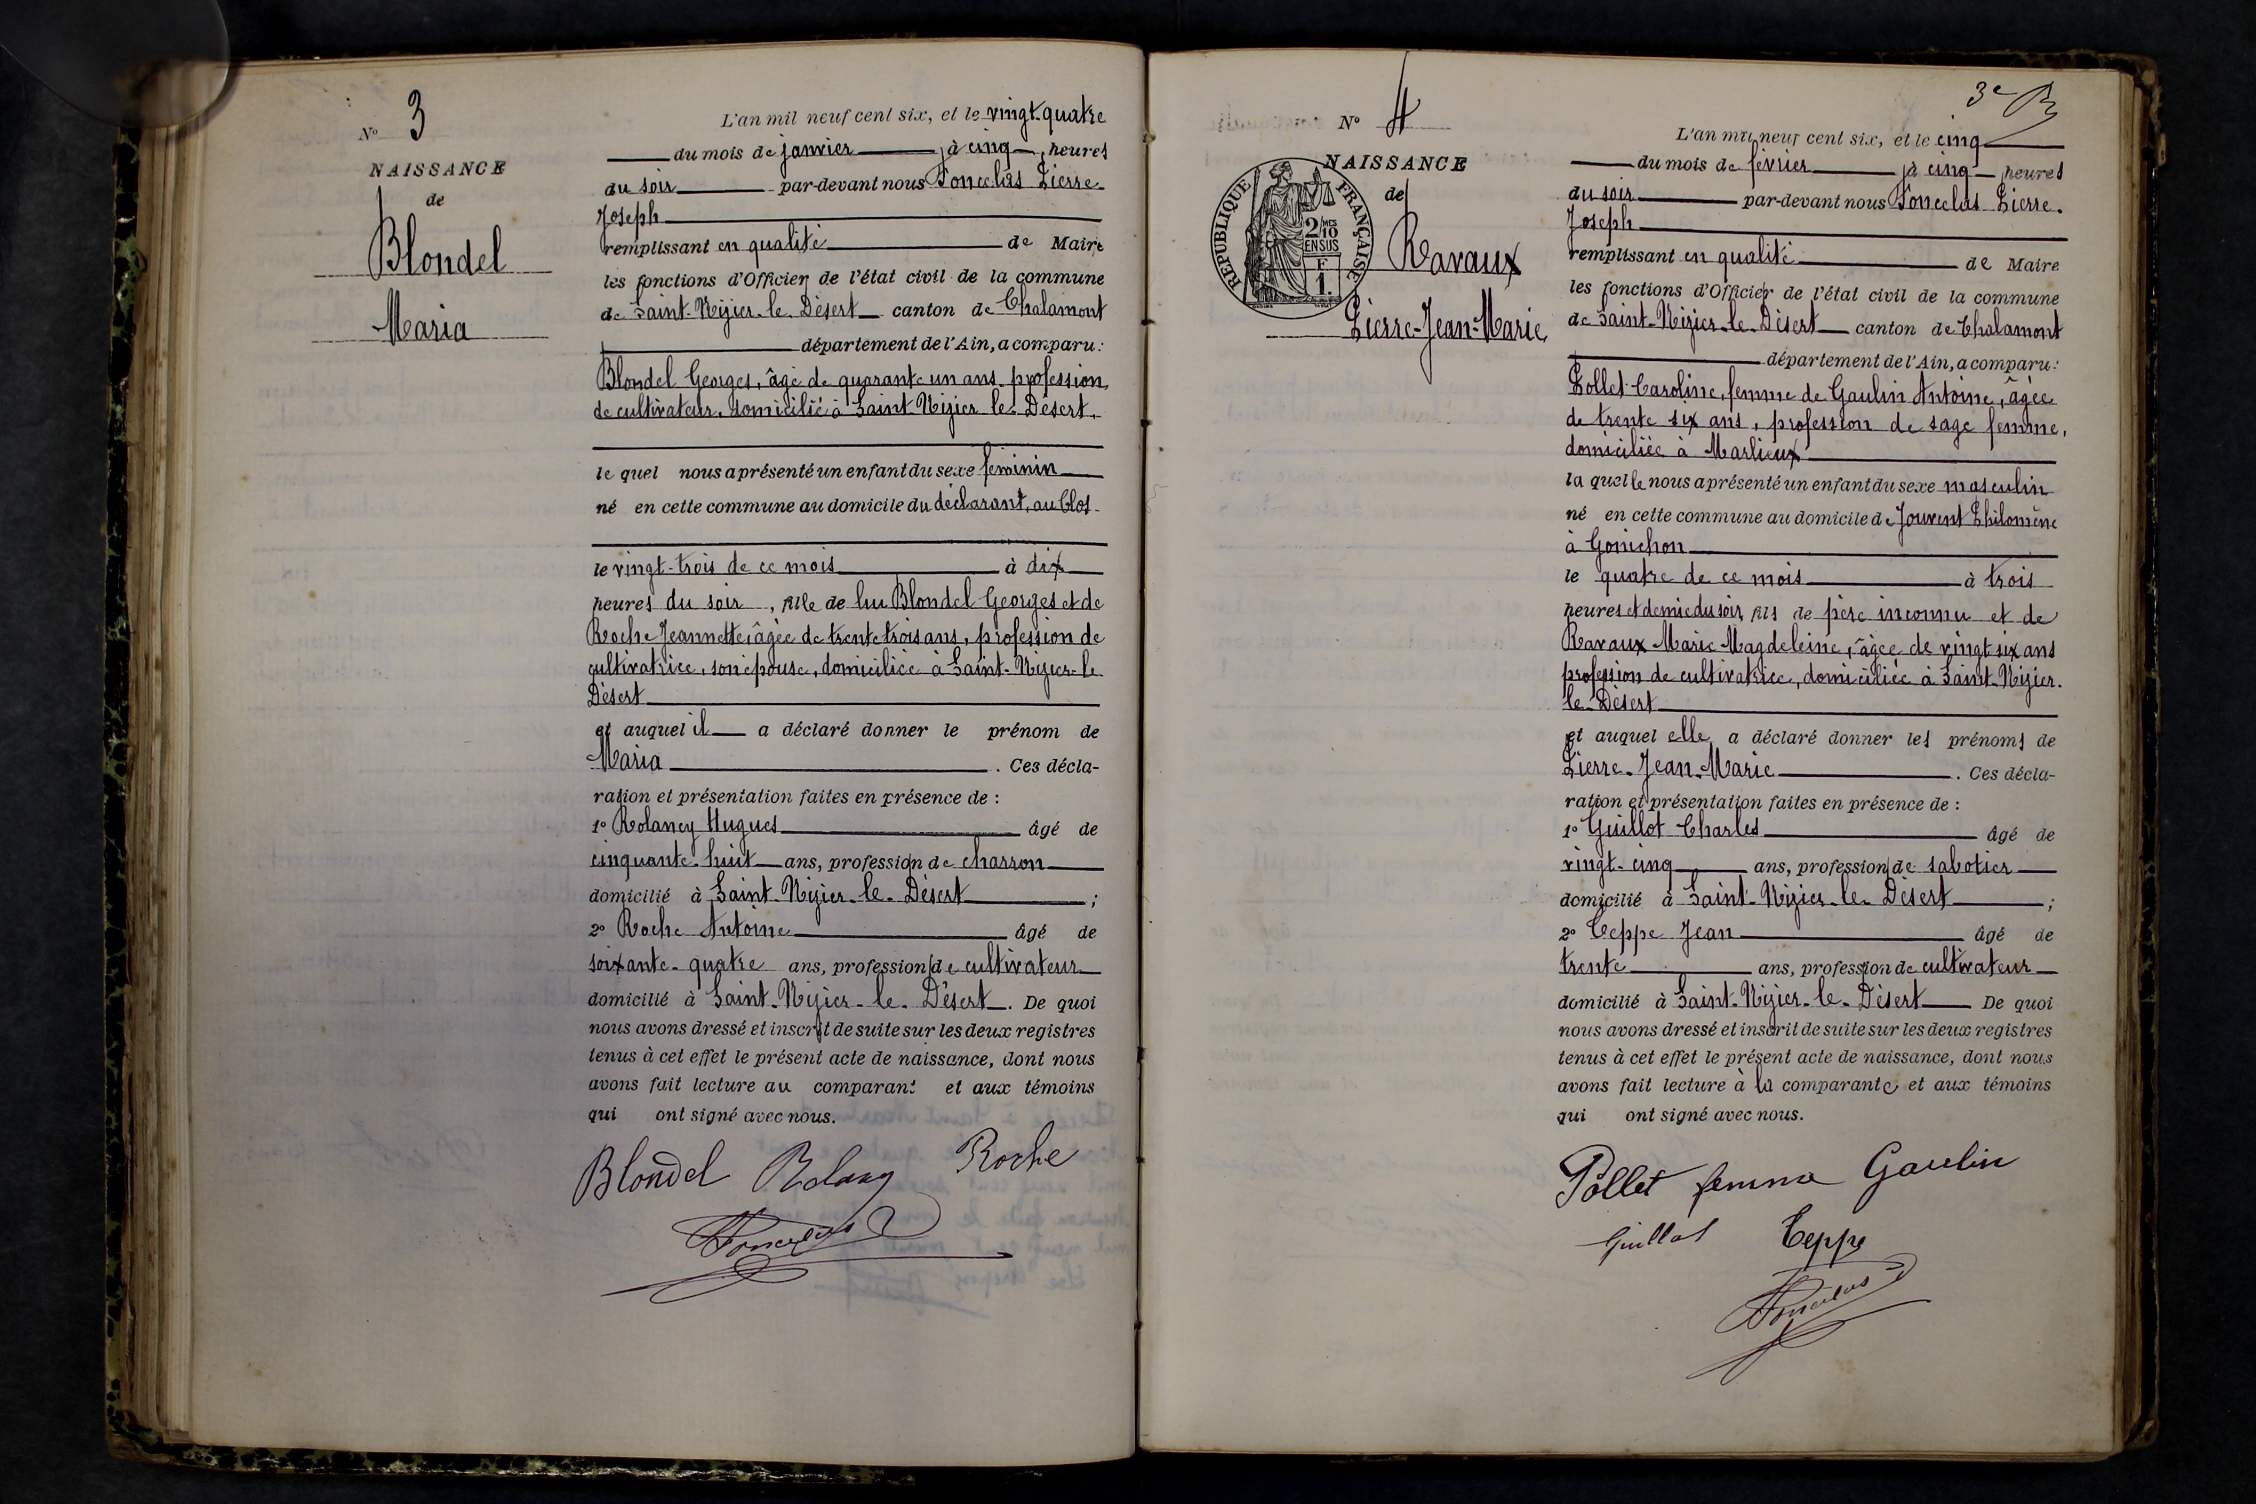 N° 3
NAISSANCE
de
Blondel
Maria
L'an mil neuf cent six, et le vingt-quatre
du mois de janvier, à cinq heures
du soir par-devant nous Poncelas Pierre-
Joseph
remplissant en qualité de Maire
les fonctions d'Officier de l'état civil de la commune
de Saint-Nizier-le-Désert canton de Chalamont
département de l'Ain, a comparu:
Blondel Georges, âgé de quarante un ans, profession
de cultivateur, domicilié à Saint-Nizier-le-Désert,
le quel nous a présenté un enfant du sexe féminin
né en cette commune au domicile du déclarant, au Clos-
le vingt-trois de ce mois à dix
heures du soir, fille de lui Blondel Georges et de
Roche Jeannette, âgée de trente trois ans, profession de
cultivatrice, son épouse, domiciliée à Saint-Nizier-le-
Désert
et auquel il a déclaré donner le prénom de
Maria. Ces décla-
ration et présentation faites en présence de :
1° Rolancy Hugues âgé de
cinquante-huit ans, profession de charron
domicilié à Saint-Nizier-le-Désert ;
2° Roche Antoine âgé de
soixante-quatre ans, profession de cultivateur
domicilié à Saint-Nizier-le-Désert. De quoi
nous avons dressé et inscrit de suite sur les deux registres
tenus à cet effet le présent acte de naissance, dont nous
avons fait lecture au comparant et aux témoins
qui ont signé avec nous.
Blondel Rolancy Roche
Poncelas
3e
N° 4
NAISSANCE
de
RÉPUBLIQUE FRANÇAISE
2/10 EN SUS
F 1.
Ravaux
Pierre-Jean-Marie
L'an mil neuf cent six, et le cinq
du mois de février, à cinq heures
du soir par-devant nous Poncelas Pierre-
Joseph
remplissant en qualité de Maire
les fonctions d'Officier de l'état civil de la commune
de Saint-Nizier-le-Désert canton de Chalamont
département de l'Ain, a comparu:
Pollet Caroline, femme de Gaulin Antoine, âgée
de trente six ans, profession de sage femme,
domiciliée à Marlieux
la quelle nous a présenté un enfant du sexe masculin
né en cette commune au domicile de Jouvent Philomène
à Gonichon
le quatre de ce mois à trois
heures et demie du soir, fils de père inconnu et de
Ravaux Marie Magdeleine, âgée de vingt six ans
profession de cultivatrice, domiciliée à Saint-Nizier-
le-Désert
et auquel elle a déclaré donner les prénoms de
Pierre-Jean-Marie. Ces décla-
ration et présentation faites en présence de :
1° Guillot Charles âgé de
vingt-cinq ans, profession de sabotier
domicilié à Saint-Nizier-le-Désert ;
2° Teppe Jean âgé de
trente ans, profession de cultivateur
domicilié à Saint-Nizier-le-Désert De quoi
nous avons dressé et inscrit de suite sur les deux registres
tenus à cet effet le présent acte de naissance, dont nous
avons fait lecture à la comparante et aux témoins
qui ont signé avec nous.
Pollet femme Gaulin
Guillot Teppe
Poncelas